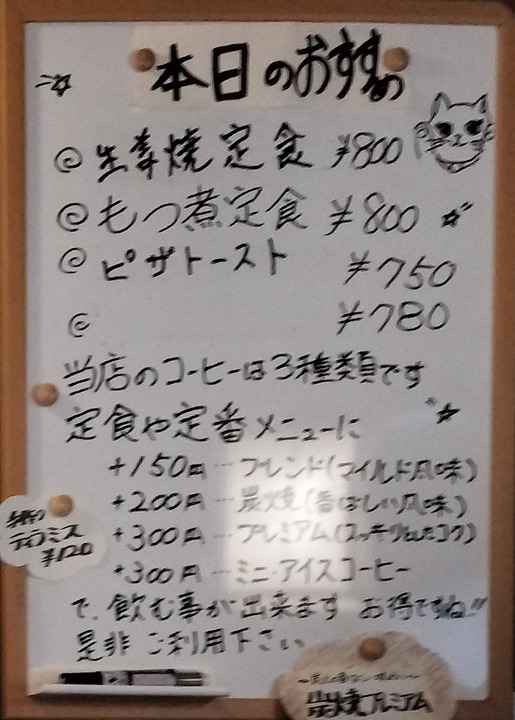 本日のおすすめ
@ 生姜焼定食 ¥800
@ もつ煮定食 ¥800
@ ピザトースト ¥750
@ ¥780
当店のコーヒーは3種類です
定食や定番メニューに
+150円…ブレンド(マイルド風味)
+200円…炭焼(香ばしい風味)
+300円…プレミアム(スッキリしたコク)
+300円…ミニ・アイスコーヒー
で、飲む事が出来ます お得ですね!!
是非 ご利用下さい
ティラミス
¥120
炭焼プレミアム